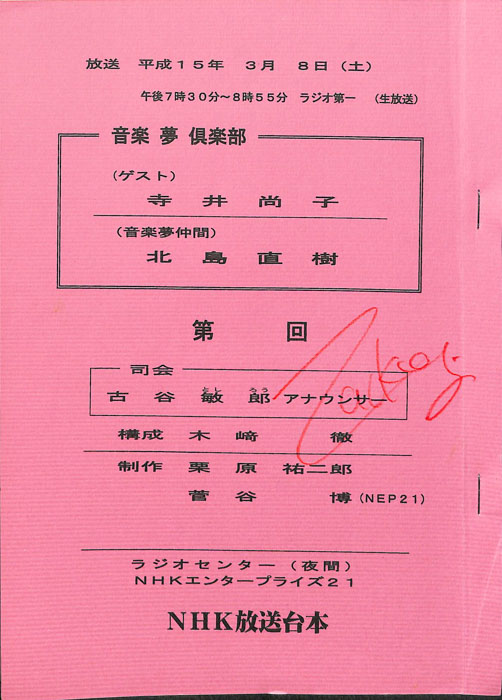 放送 平成15年 3月 8日(土)
午後7時30分〜8時55分 ラジオ第一 (生放送)
音楽 夢 倶楽部
(ゲスト)
寺井尚子
(音楽夢仲間)
北島直樹
第 回
司会
とし ろう
古谷 敏 郎 アナウンサー
構成 木﨑 徹
制作 栗原 祐二郎
菅谷 博(NEP21)
ラジオセンター(夜間)
NHKエンタープライズ21
NHK放送台本